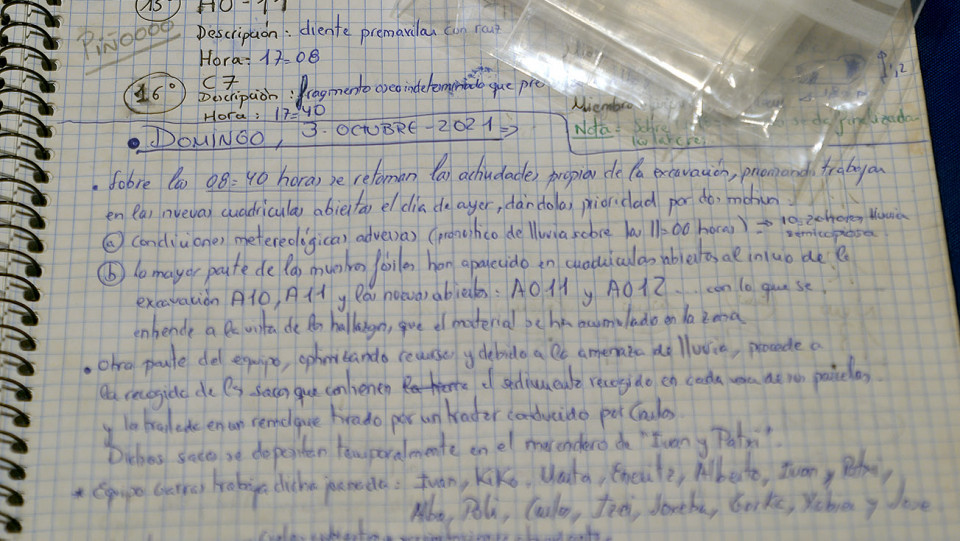 15º AO-11
PIÑOOOO
Descripción: diente premaxilar con raiz
Hora: 17=08
16º C7
Descripción: fragmento oseo indeterminado que pro
Hora: 17=40
Miembro
Nota= Sobre de finalizada
DOMINGO, 3-OCTUBRE-2021 =>
• Sobre las 08=40 horas se retoman las actividades propias de la excavación, priorizando trabajar
en las nuevas cuadriculas abiertas el día de ayer, dándolas prioridad por dos motivos:
(a) condiciones metereológicas adversas (pronóstico de lluvia sobre las 11=00 horas) => 10=20 horas lluvia
semicopiosa
(b) la mayor parte de las muestras fósiles han aparecido en cuadriculas abiertas al inicio de la
excavación A10, A11 y las nuevas abiertas: AO11 y AO12... con lo que se
entiende a la vista de los hallazgos, que el material se ha acumulado en la zona
• otra parte del equipo, optimizando recursos y debido a la amenaza de lluvia, procede a
la recogida de los sacos que contienen la tierra el sedimento recogido en cada una de las parcelas
y la traslada en un remolque tirado por un tractor conducido por Carlos.
Dichos sacos se depositan temporalmente en el merendero de "Ivan y Patri".
* Equipo trabaja dicha jornada: Ivan, Kiko, Marta, Alberto, Ivan y Patri,
Alba, Poli, Carlos, Gorka, y Jose